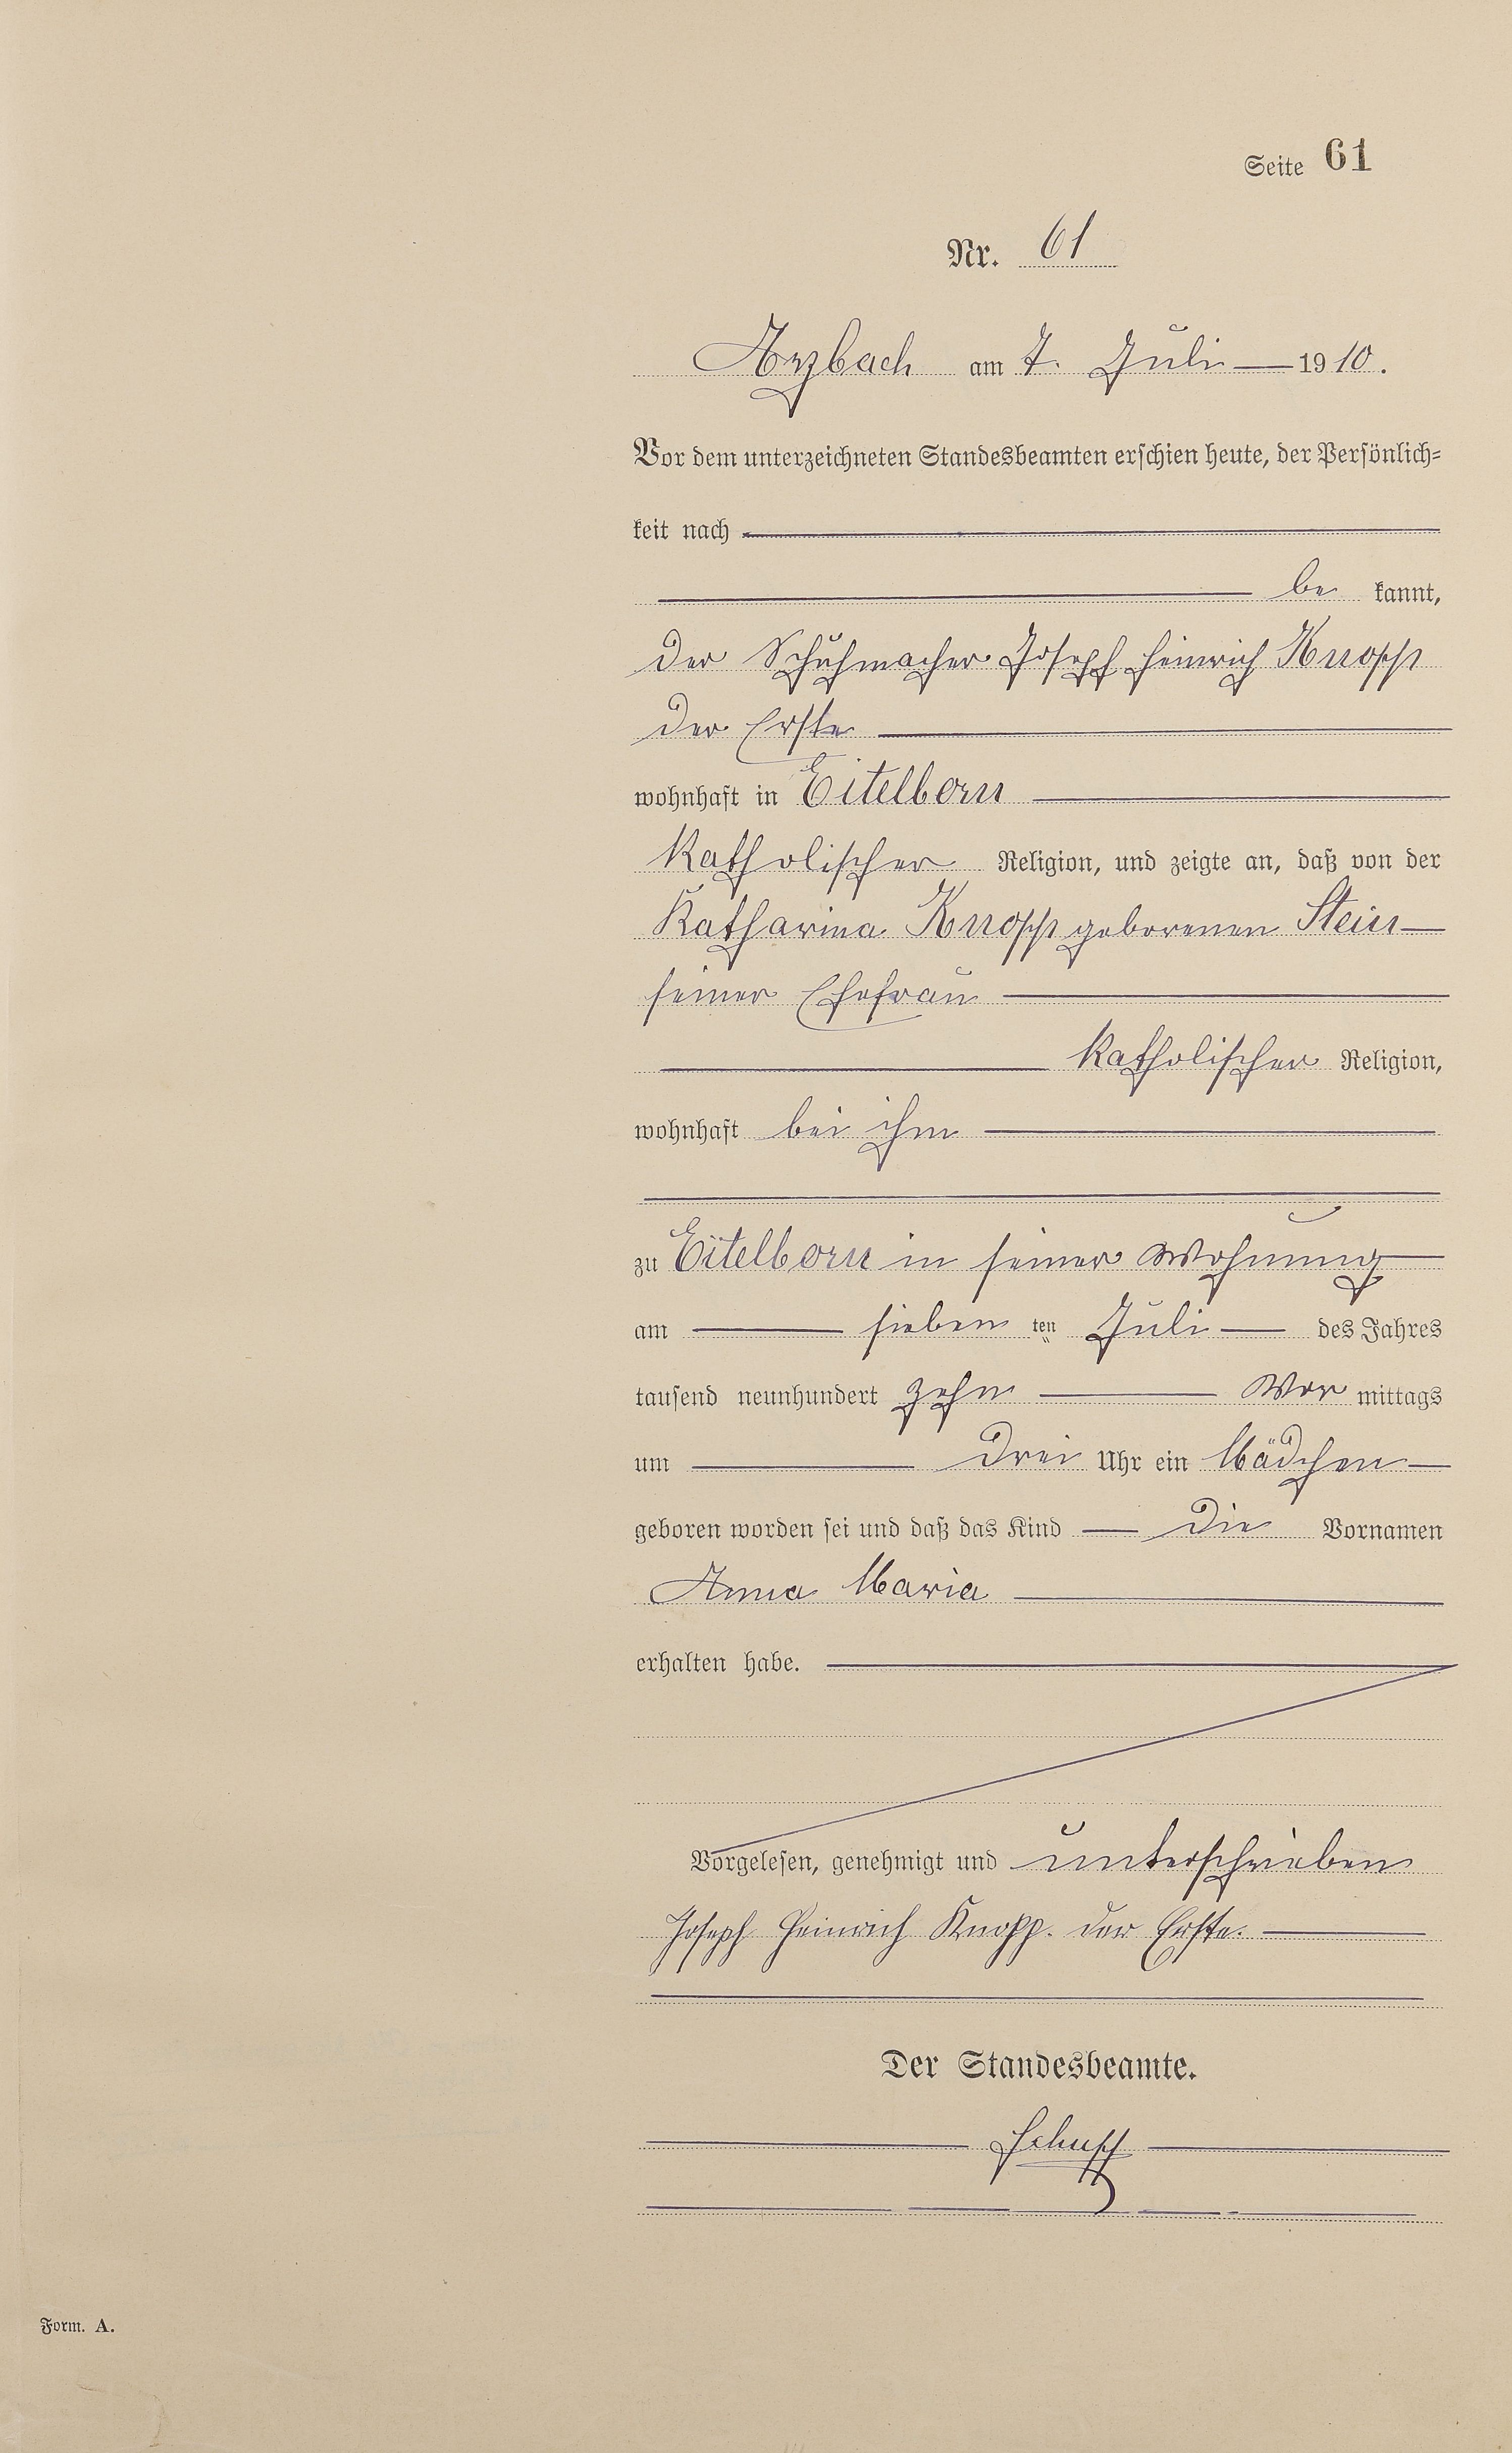 Seite 61
Nr. 61
Arzbach am 7. Juli 1910.
Vor dem unterzeichneten Standesbeamten erschien heute, der Persönlich-
keit nach
be kannt,
der Schuhmacher Joseph Heinrich Knopp
der Erste
wohnhaft in Eitelborn
katholischer Religion, und zeigte an, daß von der
Katharina Knopp geborenen Stein
seiner Ehefrau
katholischer Religion,
wohnhaft bei ihm
zu Eitelborn in seiner Wohnung
am sieben ten Juli des Jahres
tausend neunhundert zehn Vor mittags
um drei Uhr ein Mädchen
geboren worden sei und daß das Kind die Vornamen
Anna Maria
erhalten habe.
Vorgelesen, genehmigt und unterschrieben
Joseph Heinrich Knopp. der Erste.
Der Standesbeamte.
Form. A.